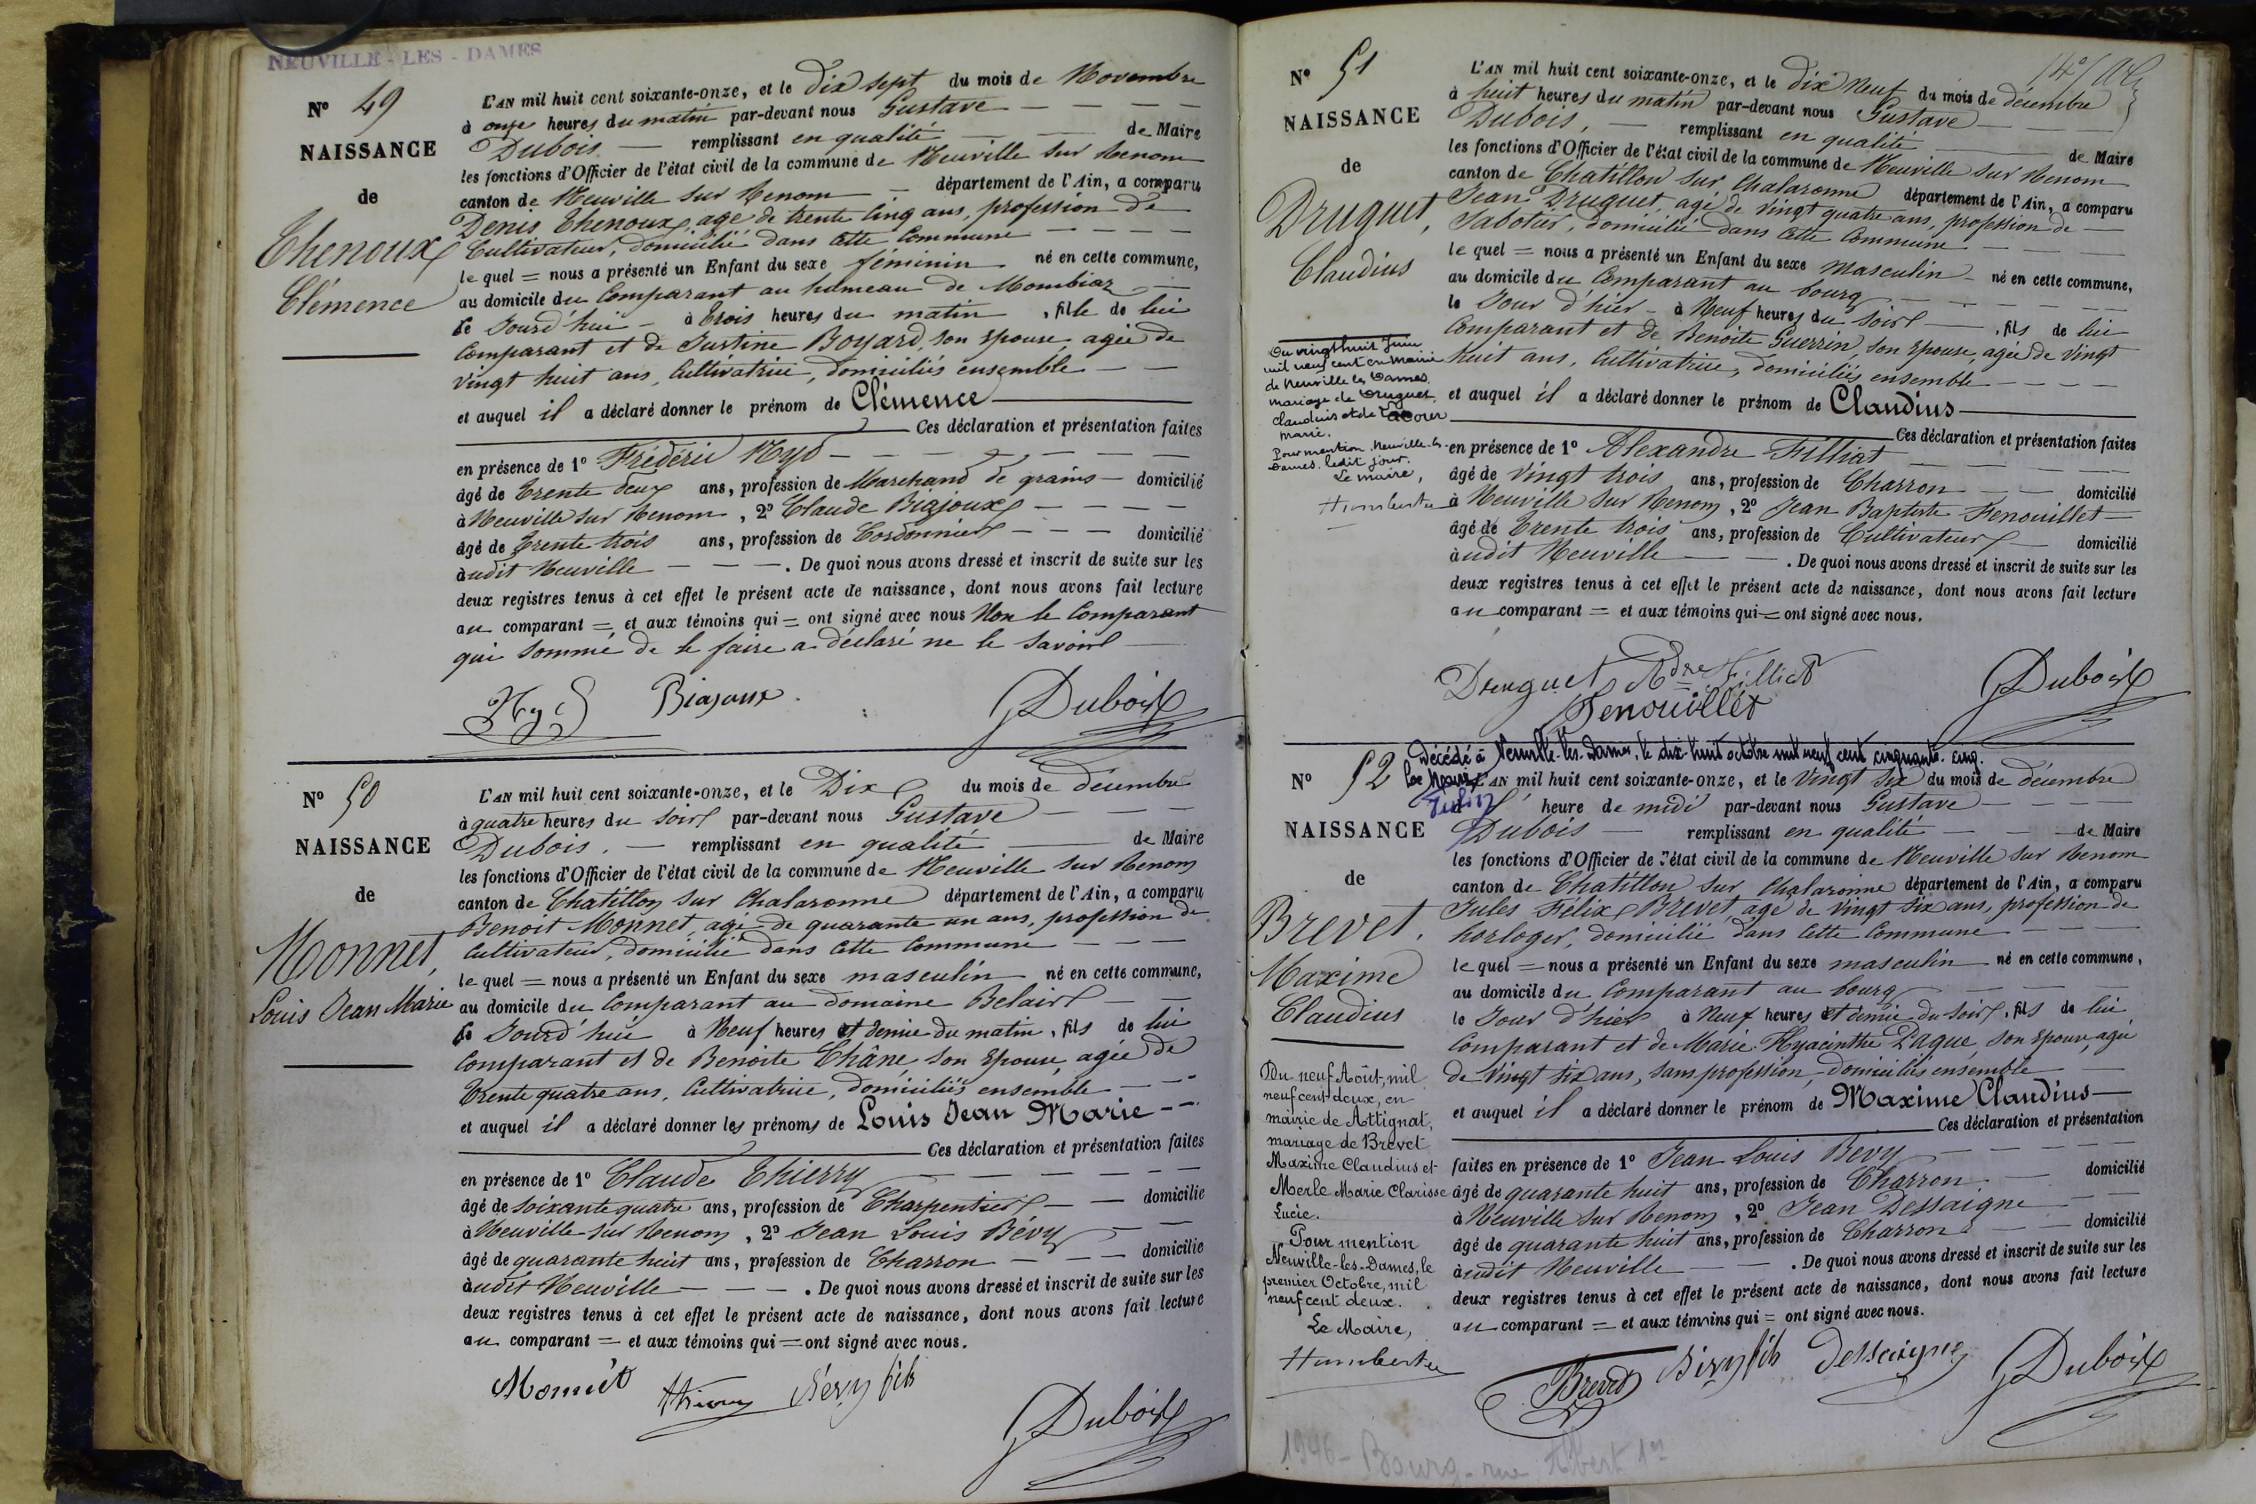 NEUVILLE-LES-DAMES
N° 49
NAISSANCE
de
Thenoux
Clémence
L'AN mil huit cent soixante-onze, et le Dix sept du mois de Novembre
à onze heures du matin par-devant nous Gustave
Dubois remplissant en qualité de Maire
les fonctions d'Officier de l'état civil de la commune de Neuville sur Renom
canton de Neuville sur Renom département de l'Ain, a comparu
Denis Thenoux, agé de trente cinq ans, profession de
Cultivateur, domicilié dans cette commune
le quel = nous a présenté un Enfant du sexe féminin né en cette commune,
au domicile du Comparant au hameau de Mombiaz
le Jourd'hui à trois heures du matin, fille de lui
Comparant et de Justine Boyard, son épouse, agée de
vingt huit ans, Cultivatrice, domiciliés ensemble
et auquel il a déclaré donner le prénom de Clémence
Ces déclaration et présentation faites
en présence de 1° Frédéric Hyd
âgé de trente deux ans, profession de Marchand de grains domicilié
à Neuville sur Renom, 2° Claude Biajoux
âgé de trente trois ans, profession de Cordonnier domicilié
audit Neuville. De quoi nous avons dressé et inscrit de suite sur les
deux registres tenus à cet effet le présent acte de naissance, dont nous avons fait lecture
au comparant = et aux témoins qui = ont signé avec nous Non le Comparant
qui sommé de le faire a déclaré ne le savoir
Biajoux
Dubois
N° 50
NAISSANCE
de
Monnet,
Louis Jean Marie
L'AN mil huit cent soixante-onze, et le Dix du mois de décembre
à quatre heures du soir par-devant nous Gustave
Dubois. remplissant en qualité de Maire
les fonctions d'Officier de l'état civil de la commune de Neuville sur Renom
canton de Chatillon sur Chalaronne département de l'Ain, a comparu
Benoit Monnet, agé de quarante un ans, profession de
Cultivateur, domicilié dans cette Commune
le quel = nous a présenté un Enfant du sexe masculin né en cette commune,
au domicile du Comparant au domaine Belair
le Jourd'hui à Neuf heures et demie du matin, fils de lui
Comparant et de Benoite Châne, son épouse, agée de
trente quatre ans, Cultivatrice, domiciliés ensemble
et auquel il a déclaré donner les prénoms de Louis Jean Marie
Ces déclaration et présentation faites
en présence de 1° Claude Thierry
âgé de soixante quatre ans, profession de Charpentier domicilié
à Neuville sur Renom, 2° Jean Louis Bévy
âgé de quarante huit ans, profession de Charron domicilié
audit Neuville. De quoi nous avons dressé et inscrit de suite sur les
deux registres tenus à cet effet le présent acte de naissance, dont nous avons fait lecture
au comparant = et aux témoins qui = ont signé avec nous.
Monnet Thierry Bévy fils
Dubois
N° 51
NAISSANCE
de
Druguet,
Claudius
Du vingt huit Juin
mil neuf cent en mairie
de Neuville les Dames,
mariage de Druguet
Claudius et de
marie.
Pour mention, Neuville-les-
Dames, ledit jour.
Le maire,
L'AN mil huit cent soixante-onze, et le dix Neuf du mois de décembre
à huit heures du matin par-devant nous Gustave
Dubois, remplissant en qualité de Maire
les fonctions d'Officier de l'état civil de la commune de Neuville sur Renom
canton de Chatillon sur Chalaronne département de l'Ain, a comparu
Jean Druguet, agé de vingt quatre ans, profession de
Sabotier, domicilié dans cette Commune
le quel = nous a présenté un Enfant du sexe masculin né en cette commune,
au domicile du Comparant au bourg
le Jour d'hier à Neuf heures du soir, fils de lui
Comparant et de Benoite Guerrin, son épouse, agée de vingt
huit ans, Cultivatrice, domiciliés ensemble
et auquel il a déclaré donner le prénom de Claudius
Ces déclaration et présentation faites
en présence de 1° Alexandre Filliat
âgé de vingt trois ans, profession de Charron domicilié
à Neuville sur Renom, 2° Jean Baptiste Fenouillet
âgé de trente trois ans, profession de Cultivateur domicilié
audit Neuville. De quoi nous avons dressé et inscrit de suite sur les
deux registres tenus à cet effet le présent acte de naissance, dont nous avons fait lecture
au comparant = et aux témoins qui = ont signé avec nous.
Druguet Adre Filliat
Fenouillet
Dubois
Décédé à Neuville-les-Dames, le dix-huit octobre mil neuf cent cinquante-cinq.
N° 52
NAISSANCE
de
Brevet.
Maxime
Claudius
Du neuf Août, mil
neuf cent deux, en
mairie de Attignat,
mariage de Brevet
Maxime Claudius et
Merle Marie Clarisse
Lucie.
Pour mention
Neuville-les-Dames, le
premier Octobre, mil
neuf cent deux.
Le Maire,
L'AN mil huit cent soixante-onze, et le vingt six du mois de décembre
à l'heure de midi par-devant nous Gustave
Dubois remplissant en qualité de Maire
les fonctions d'Officier de l'état civil de la commune de Neuville sur Renom
canton de Chatillon sur Chalaronne département de l'Ain, a comparu
Jules Félix Brevet, agé de vingt six ans, profession de
horloger, domicilié dans cette Commune
le quel = nous a présenté un Enfant du sexe masculin né en cette commune,
au domicile du Comparant au bourg
le Jour d'hier à Neuf heures et demie du soir, fils de lui
Comparant et de Marie Hyacinthe Paque, son épouse, agée
de vingt six ans, sans profession, domiciliés ensemble
et auquel il a déclaré donner le prénom de Maxime Claudius
Ces déclaration et présentation
faites en présence de 1° Jean Louis Bevy
âgé de quarante huit ans, profession de Charron domicilié
à Neuville sur Renom, 2° Jean Dessaigne
âgé de quarante huit ans, profession de Charron domicilié
audit Neuville. De quoi nous avons dressé et inscrit de suite sur les
deux registres tenus à cet effet le présent acte de naissance, dont nous avons fait lecture
au comparant = et aux témoins qui = ont signé avec nous.
Brevet Bévy fils Dessaigne
Dubois
1946 - Bourg - rue Albert 1er